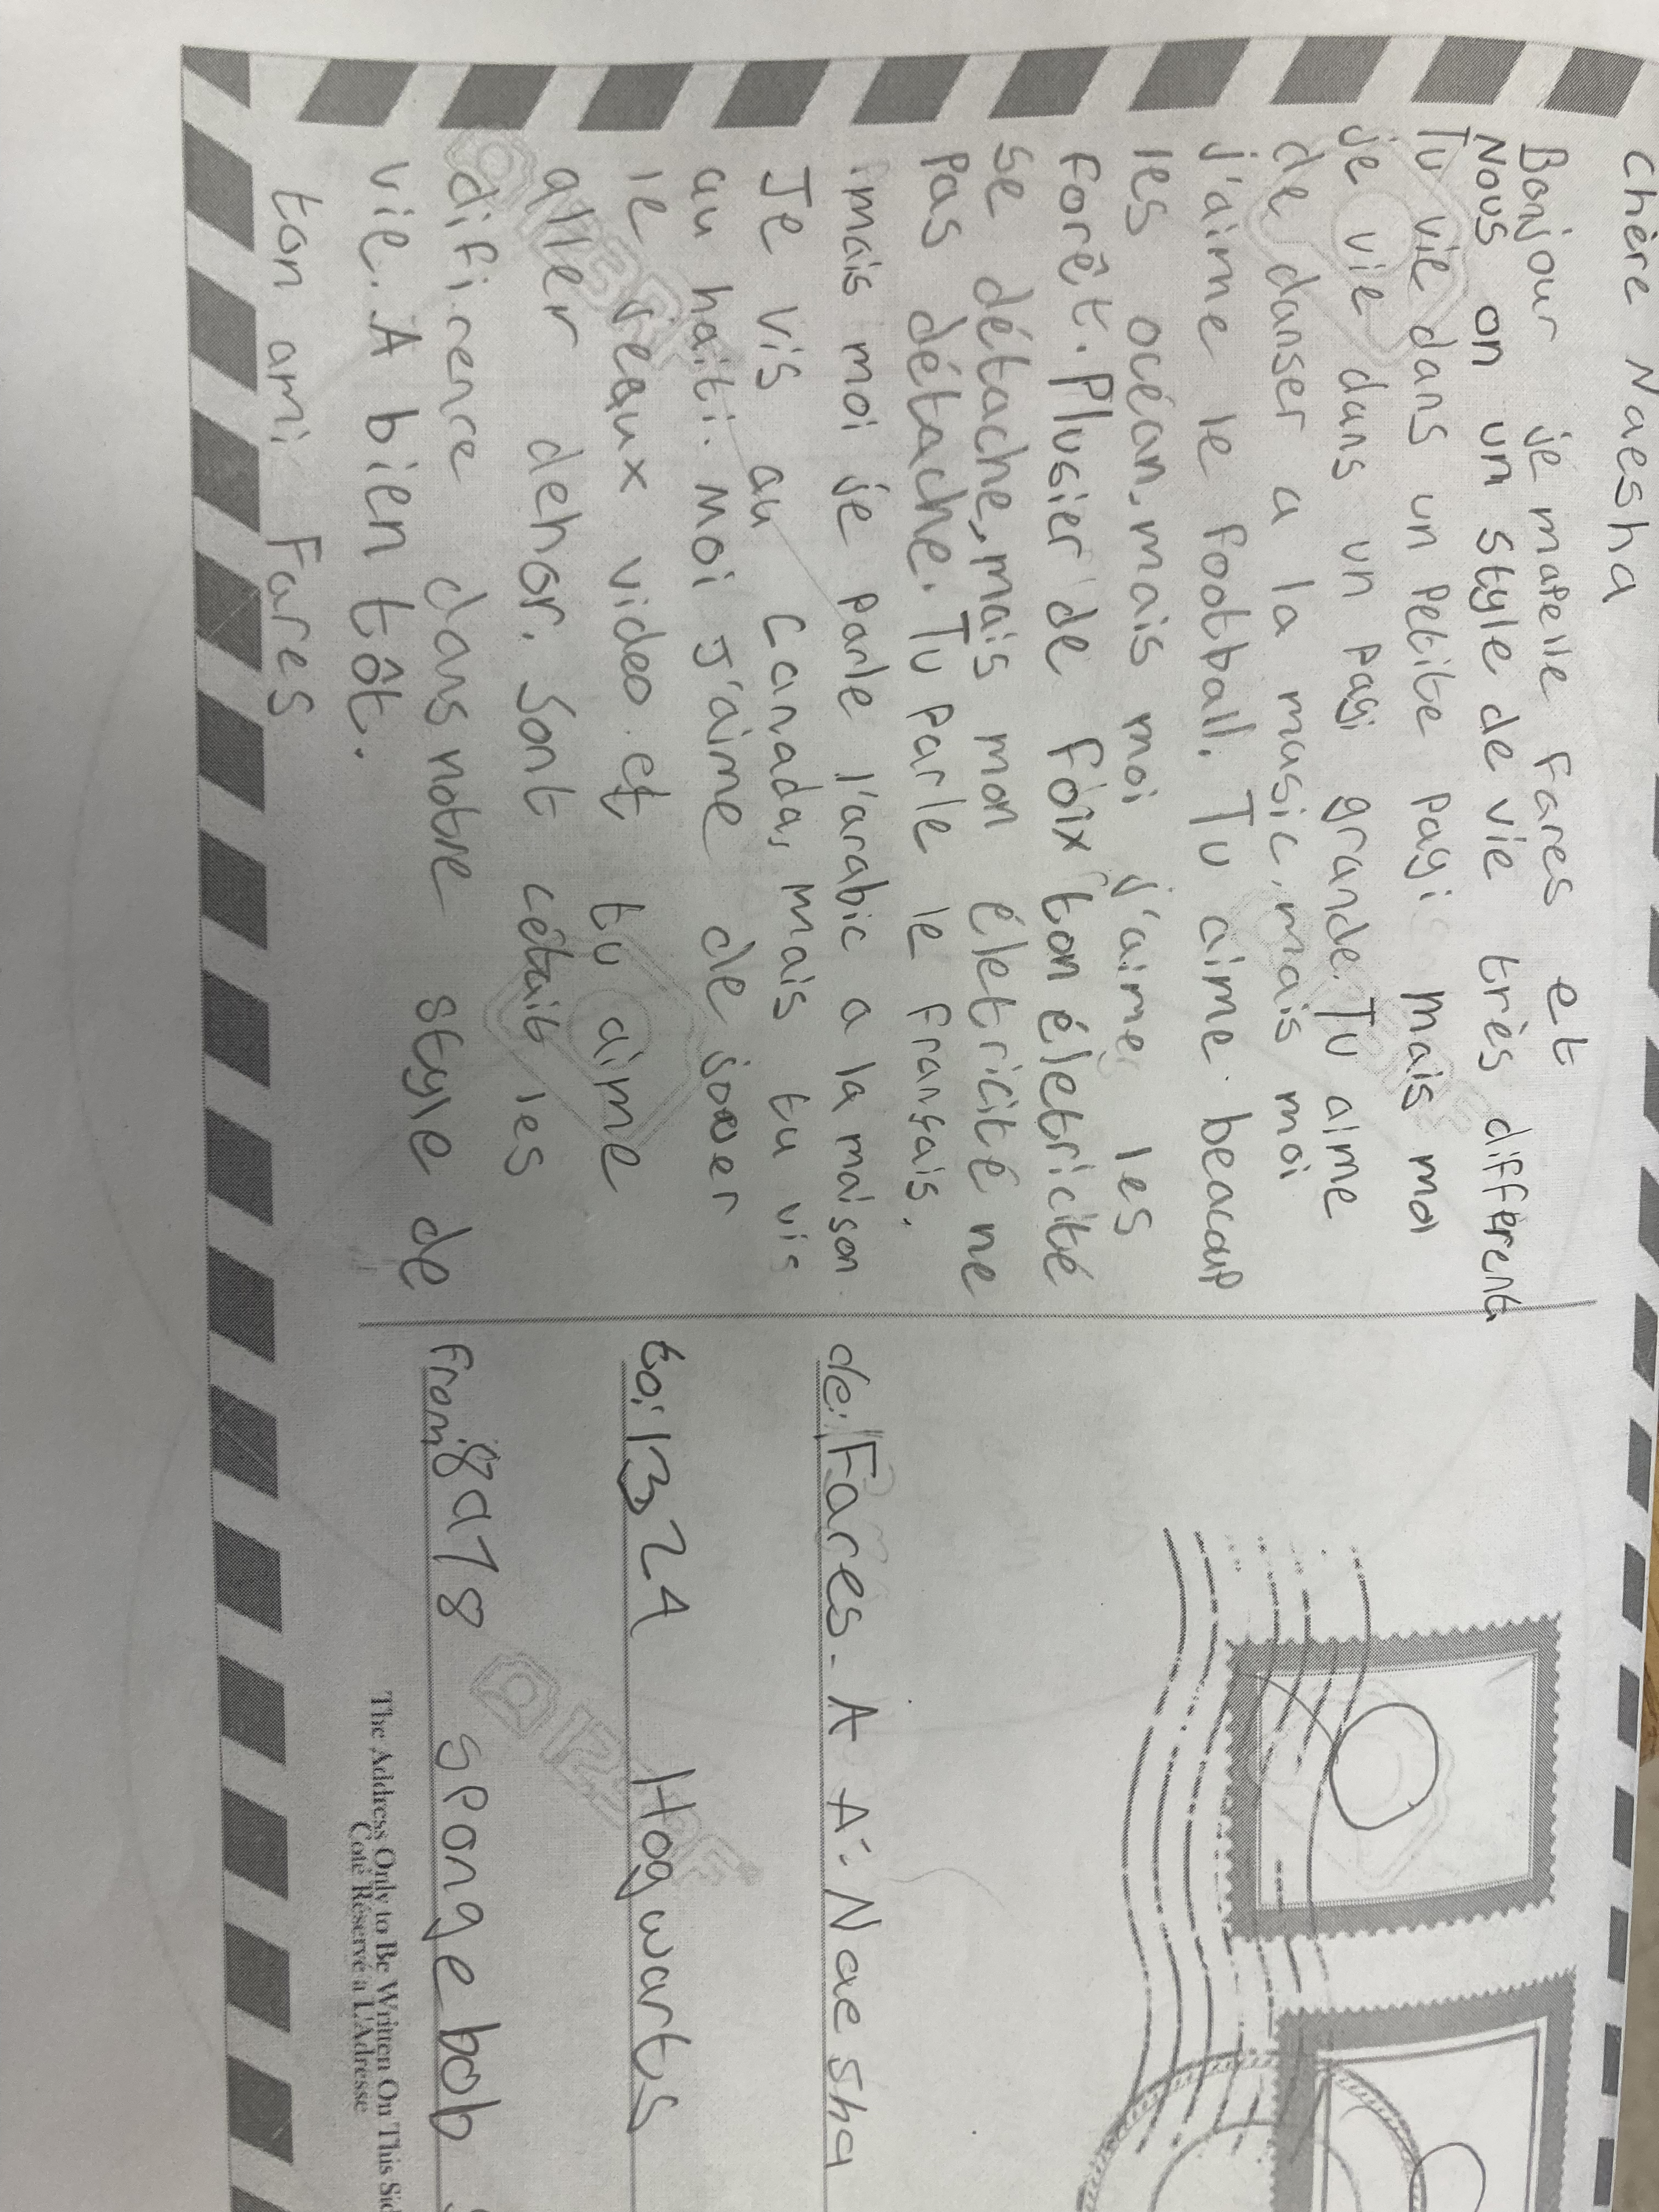 Chère Naesha
Bonjour je mapelle Fares et
Nous on un style de vie très different.
Tu vie dans un Petite pagi mais moi
je vie dans un pagi grande. Tu aime
de danser a la music, mais moi
j'aime le football. Tu aime beacaup
les océan, mais moi j'aime les
Forêt. Plusier de foix ton életricité
se détache, mais mon életricité ne
Pas détache. Tu parle le Fransais.
mais moi je parle l'arabic a la maison.
Je vis au Canada, mais tu vis
au haiti. Moi J'aime de jouer
le jeaux video. et tu aime
aller dehor. Sont cétait les
difirence dans notre style de
vie. A bien tôt.
ton ami Fares
de: Fares. A A: Naesha
to: 1324 Hogwarts
From: 8978 spongebob
The Address Only to Be Written On This Sid
Coté Réservé a L'Adresse
123RF